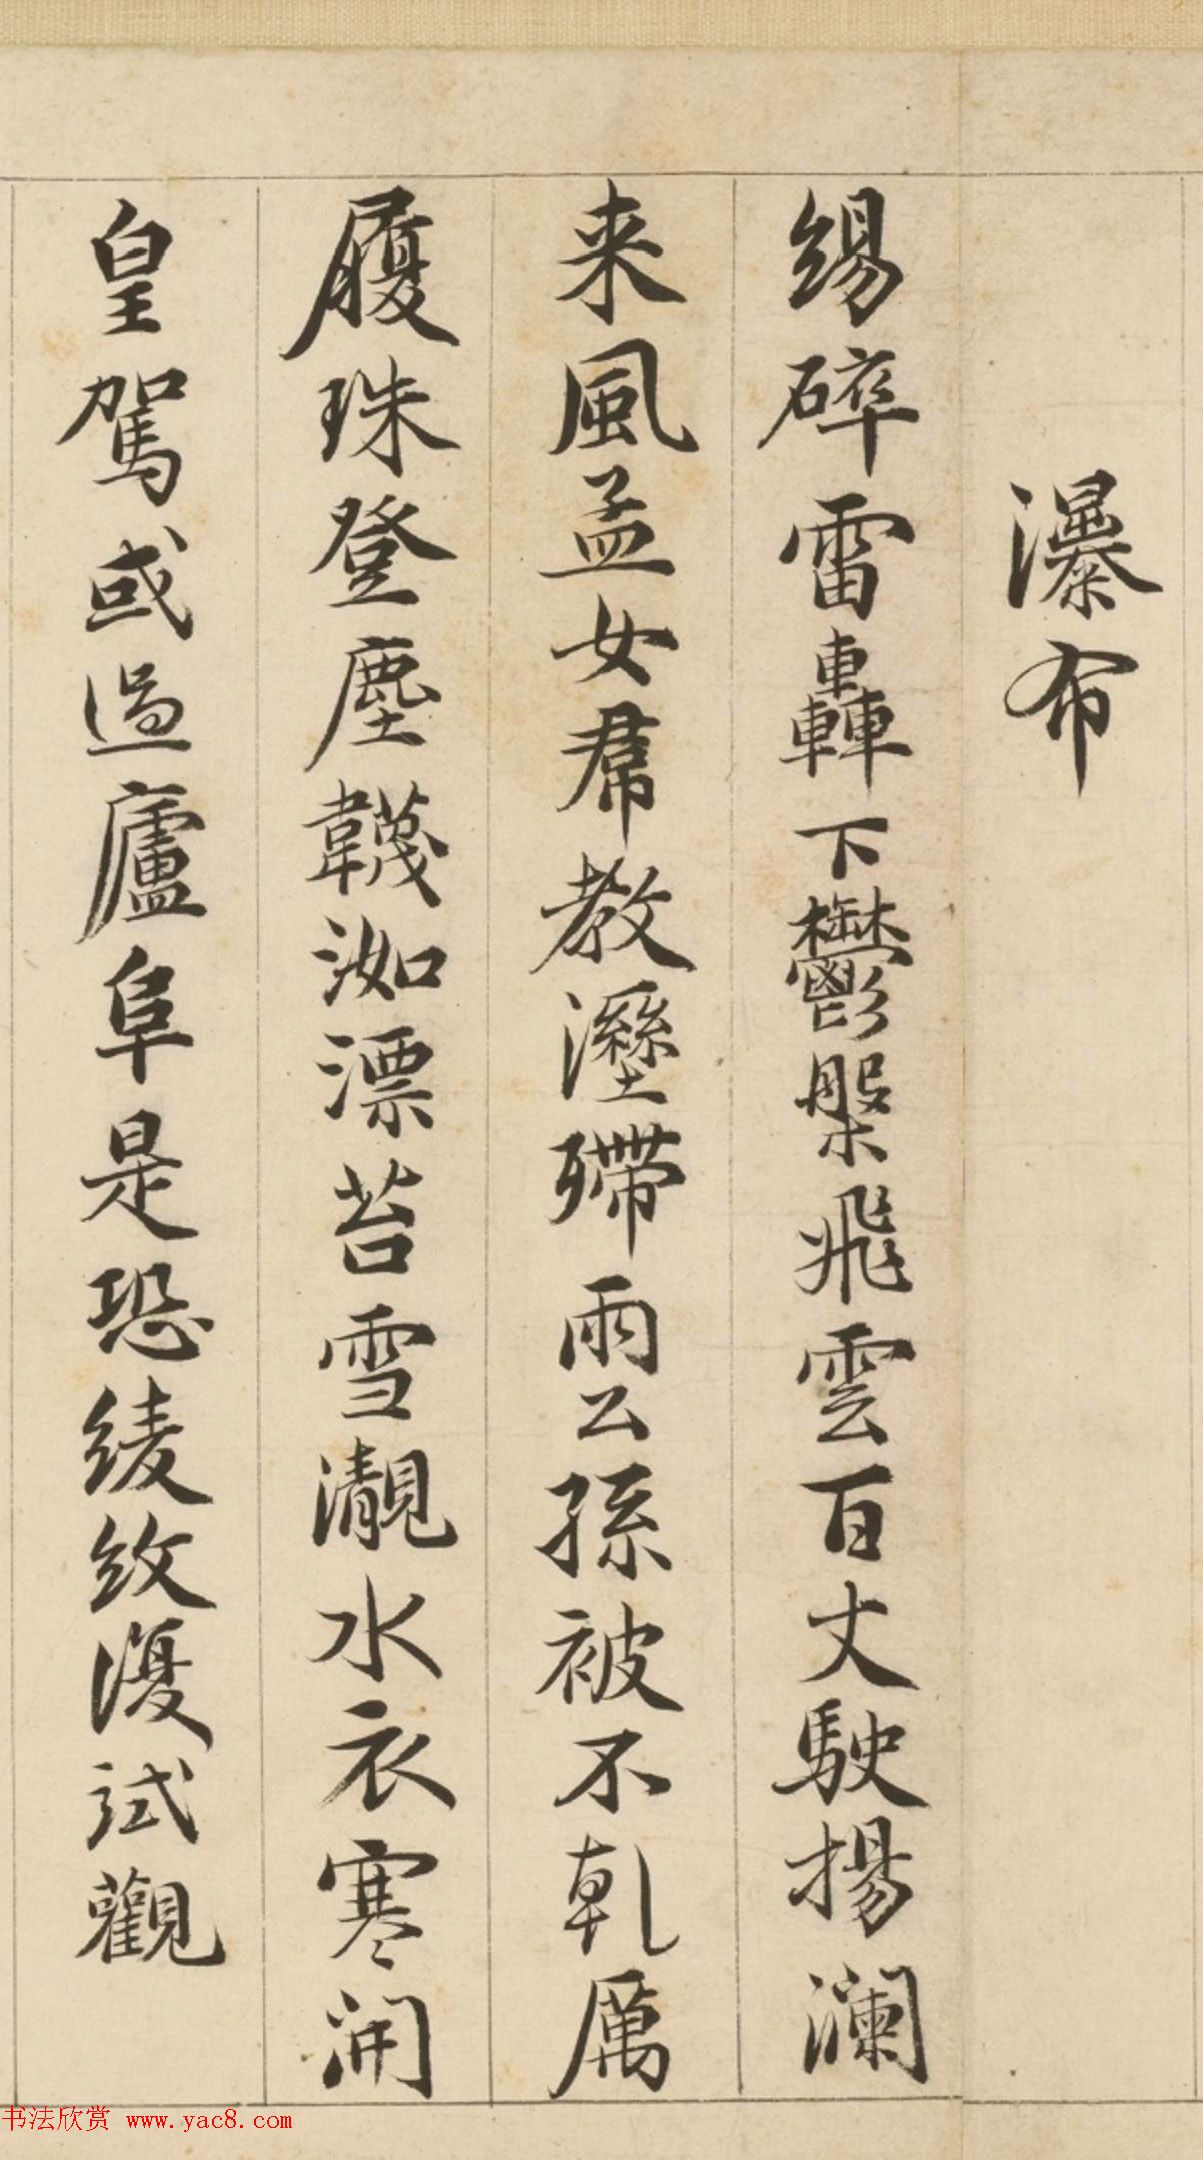 瀑布
錫碎雷轟下鬱槃飛雲百丈駛揚瀾
来風孟女帬教溼殢雨公孫被不乹厲
履珠登塵韈洳漂苔雪瀙水衣寒開
皇駕或過廬阜是恐綾紋漫試觀
书法欣赏 www.yac8.com